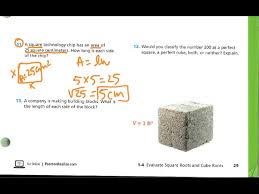 11. A square technology chip has an area of
25 square centimeters. How long is each side
of the chip?
A = lw
x
A=25cm²
x
5 x 5 = 25
√25 = 5cm
12. Would you classify the number 200 as a perfect
square, a perfect cube, both, or neither? Explain.
13. A company is making building blocks. What is
the length of each side of the block?
V = 1 ft³
Go Online | PearsonRealize.com
1-4 Evaluate Square Roots and Cube Roots 29